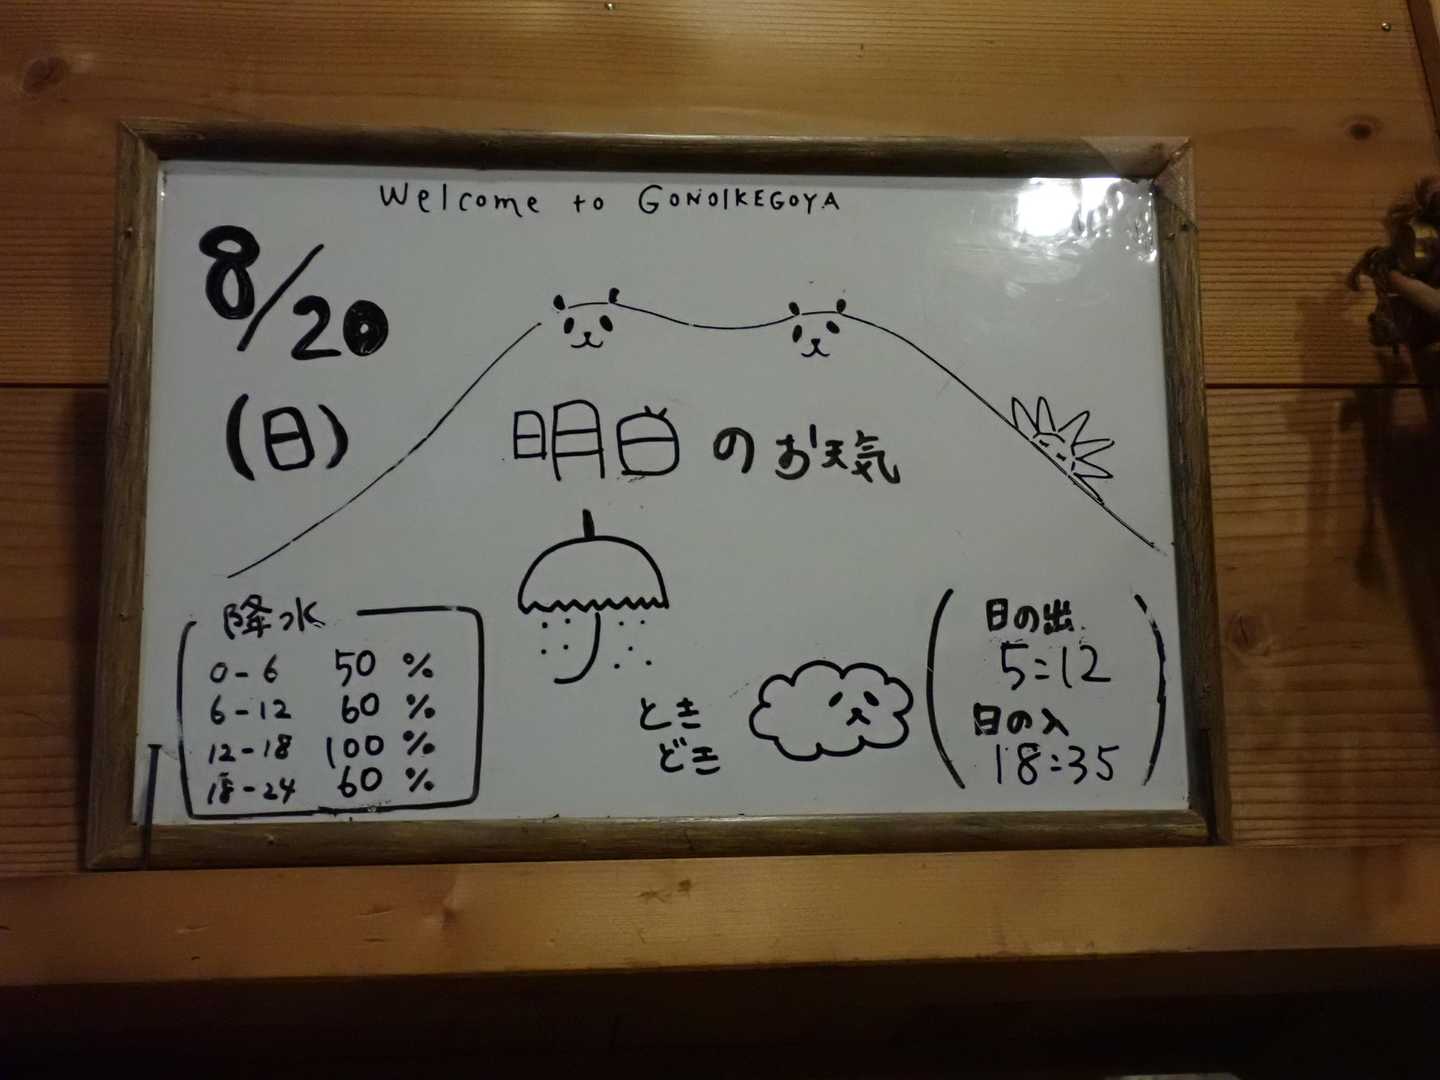 Welcome to GONOIKEGOYA
8/20
(日)
明日のお天気
降水
0-6 50 %
6-12 60 %
12-18 100 %
18-24 60 %
とき
どき
日の出
5:12
日の入
18:35